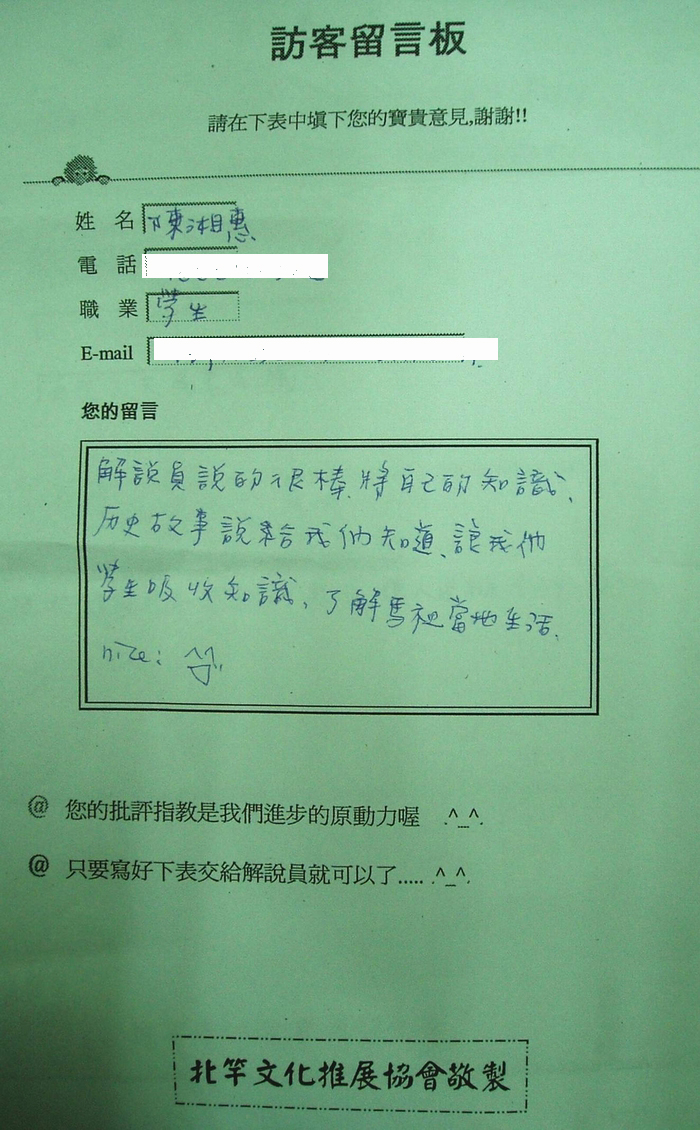 訪客留言板
請在下表中填下您的寶貴意見,謝謝!!
姓 名 陳湘惠
電 話
職 業 学生
E-mail
您的留言
解說員說的很棒、將自己的知識、
历史故事說給我们知道、讓我们
学生吸收知識、了解馬祖當地生活、
nice: ^^
@ 您的批評指教是我們進步的原動力喔 .^_^.
@ 只要寫好下表交給解說員就可以了..... .^_^.
北竿文化推展協會敬製